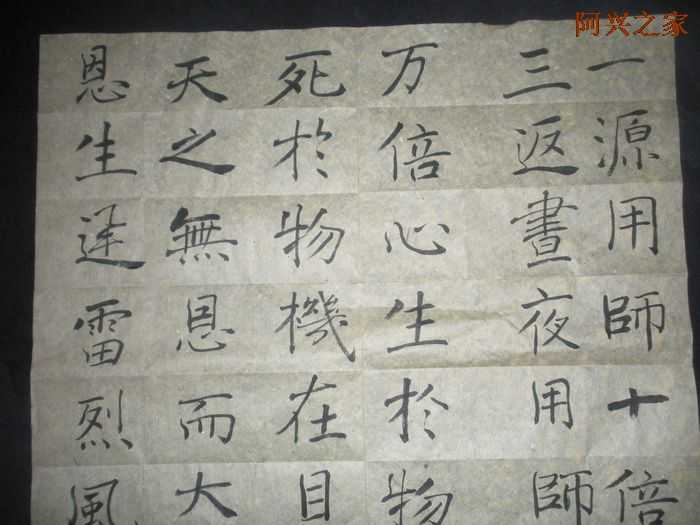 阿兴之家
一源用師十倍
三返晝夜用師
万倍心生於物
死於物機在目
天之無恩而大
恩生迅雷烈風